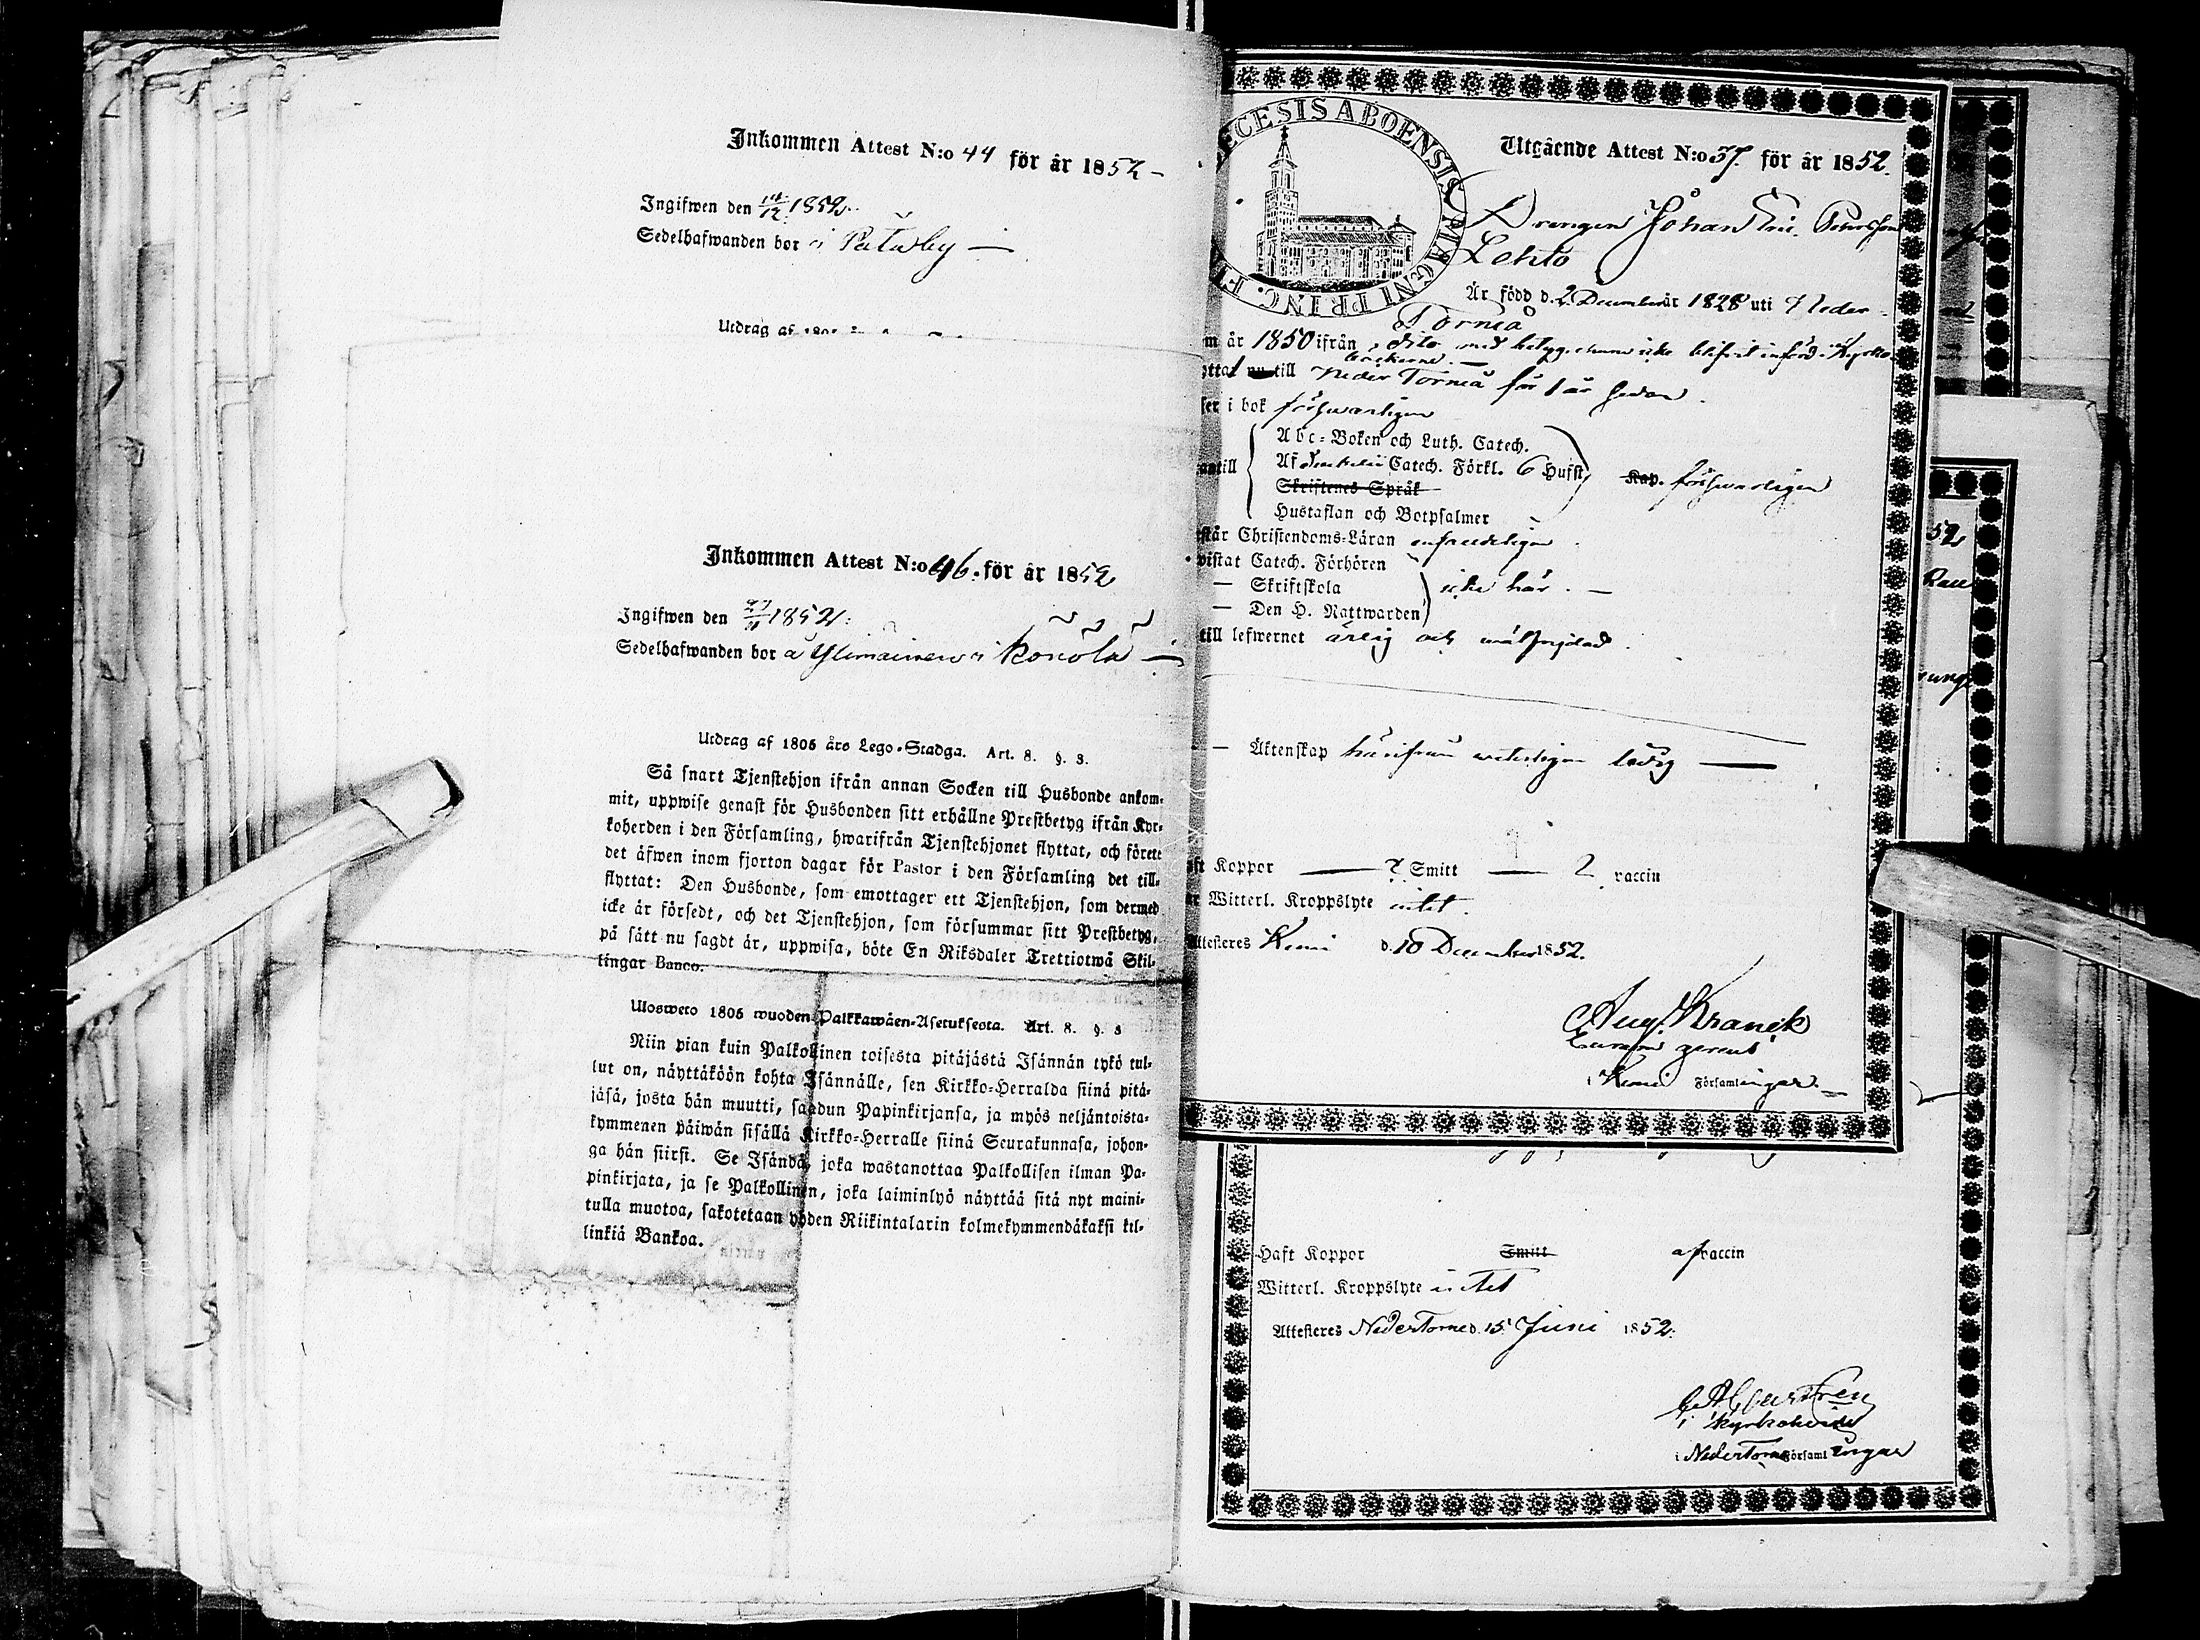 Inkommen Attest N:o 44 för år 1852 –
Ingifwen den 1852.
Sedelhafwanden bor i
Utdrag af
Inkommen Attest N:o 46. för år 1852
Ingifwen den 1852.
Sedelhafwanden bor å Ylimainen i Könölä —
Utdrag af 1805 års Lego-Stadga. Art. 8. §. 8.
Så snart Tjenstehjon ifrån annan Socken till Husbonde ankom-
mit, uppwise genast för Husbonden sitt erhållne Prestbetyg ifrån Kyr-
koherden i den Församling, hwarifrån Tjenstehjonet flyttat, och förete
det äfwen inom fjorton dagar för Pastor i den Församling det till-
flyttat: Den Husbonde, som emottager ett Tjenstehjon, som dermed
icke är försedt, och det Tjenstehjon, som försummar sitt Prestbetyg,
på sätt nu sagdt är, uppwisa, böte En Riksdaler Trettiotwå Skil-
lingar Banco.
Ulosweto 1805 wuoden Palkkawäen-Asetuksesta. Art. 8. §. 8
Niin pian kuin Palkollinen toisesta pitäjästä Isännän tykö tul-
lut on, näyttäköön kohta Isännälle, sen Kirkko-Herralda siinä pitä-
jäsä, josta hän muutti, saadun Papinkirjansa, ja myös neljäntoista-
kymmenen päiwän sisällä Kirkko-Herralle siinä Seurakunnasa, johon-
ga hän siirsi. Se Isändä, joka wastanottaa Palkollisen ilman Pa-
pinkirjata, ja se Palkollinen, joka laiminlyö näyttää sitä nyt maini-
tulla muotoa, sakotetaan yhden Riikintalarin kolmekymmendäkaksi kil-
linkiä Bankoa.
ECESIS ABOENSIS MAGNI PRINC. F
Utgående Attest N:o 37. för år 1852.
Drengen Johan
Lehto
Är född d. 2 December år 1828 uti Neder
Torneå
m år 1850 ifrån dito med betyg, icke blifvit införd i Kyrko
böckerne. —
yttat till Neder Torneå för 1 år sedan.
ser i bok förswarligen
antill
Abc-Boken och Luth. Catech.
Af Catech. Förkl. 6 Hufst. Kap. försvarligen
Skriftenes Språk
Hustaflan och Botpsalmer
står Christendoms-Läran enfaldeligen.
wistat Catech. Förhören
— Skriftskola icke här. —
— Den H. Nattwarden
till lefwernet ärlig och
— Äktenskap härifrån veterligen ledig —
ft Koppor — ? Smitt — ? vaccin
r Witterl. Kroppslyte intet.
Attesteres Kemi d. 10 December 1852.
Aug. Kranck
i Kemi Församlingar. —
Haft Koppor Smitt af vaccin
Witterl. Kroppslyte intet
Attesteres NederTorneå d. 15 Juni 1852.
Kyrkoherde
i NederTorneå Församlingar
52